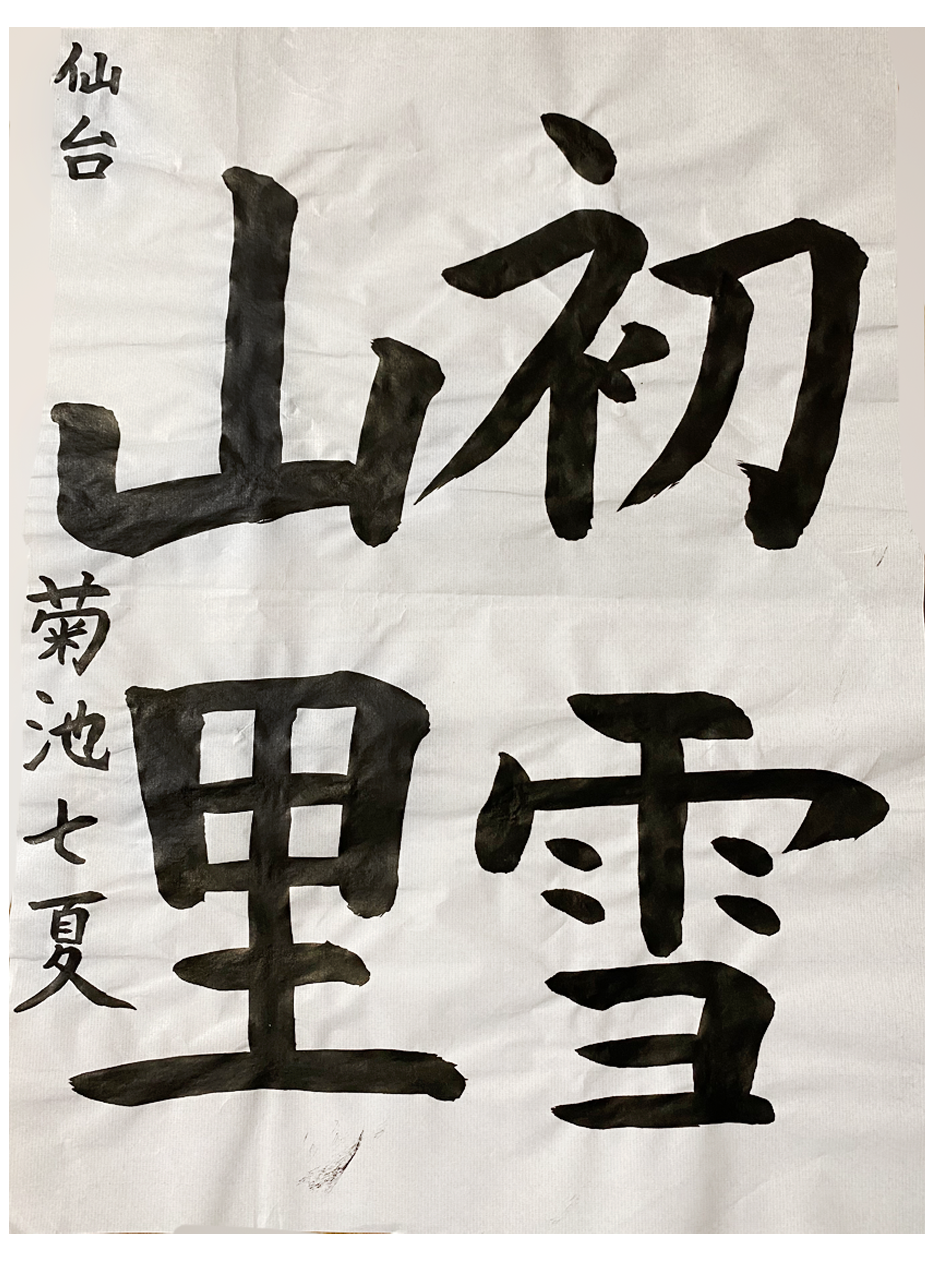 初雪
山里
仙台 菊池七夏